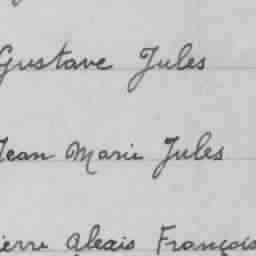 Gustave Jules
Jean Marie Jules
ierre Alexis François